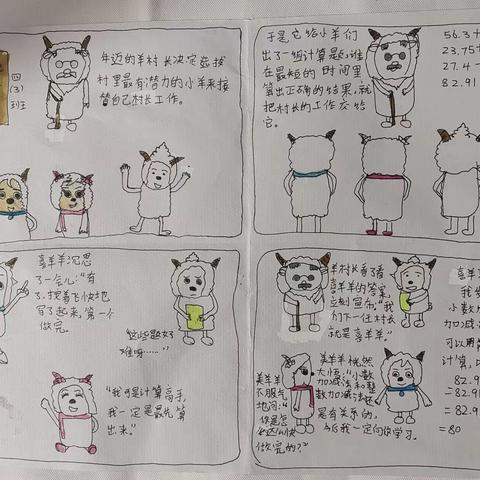 四
(3)
班
年迈的羊村长决定在村
村里最有潜力的小羊来接
替自己村长工作。
于是它给小羊们
出了一组计算题,谁
在最短的时间里
算出正确的结果,就
把村长的工作交给
它。
56.3+
23.75+
27.4-
82.91
喜羊羊沉思
了一会儿:“有
了。”提着飞快地
写了起来,第一个
做完。
这些题好
难呀……”
“我可是计算高手,
我一定是最先算
出来。”
羊村长看了看
喜羊羊的答案,
立刻宣布:“我
们下一任村长
就是喜羊羊。”
美羊羊
不服气
地问:“
你是怎
么这么快
做完的?”
美羊羊恍然
大悟:“小数
加减法和整
数加减法还
是有关系的。
以后我一定向你学习。
喜羊
我
小数
加减法
可以用
计算,
82.9
=82.91
=82.9
=80